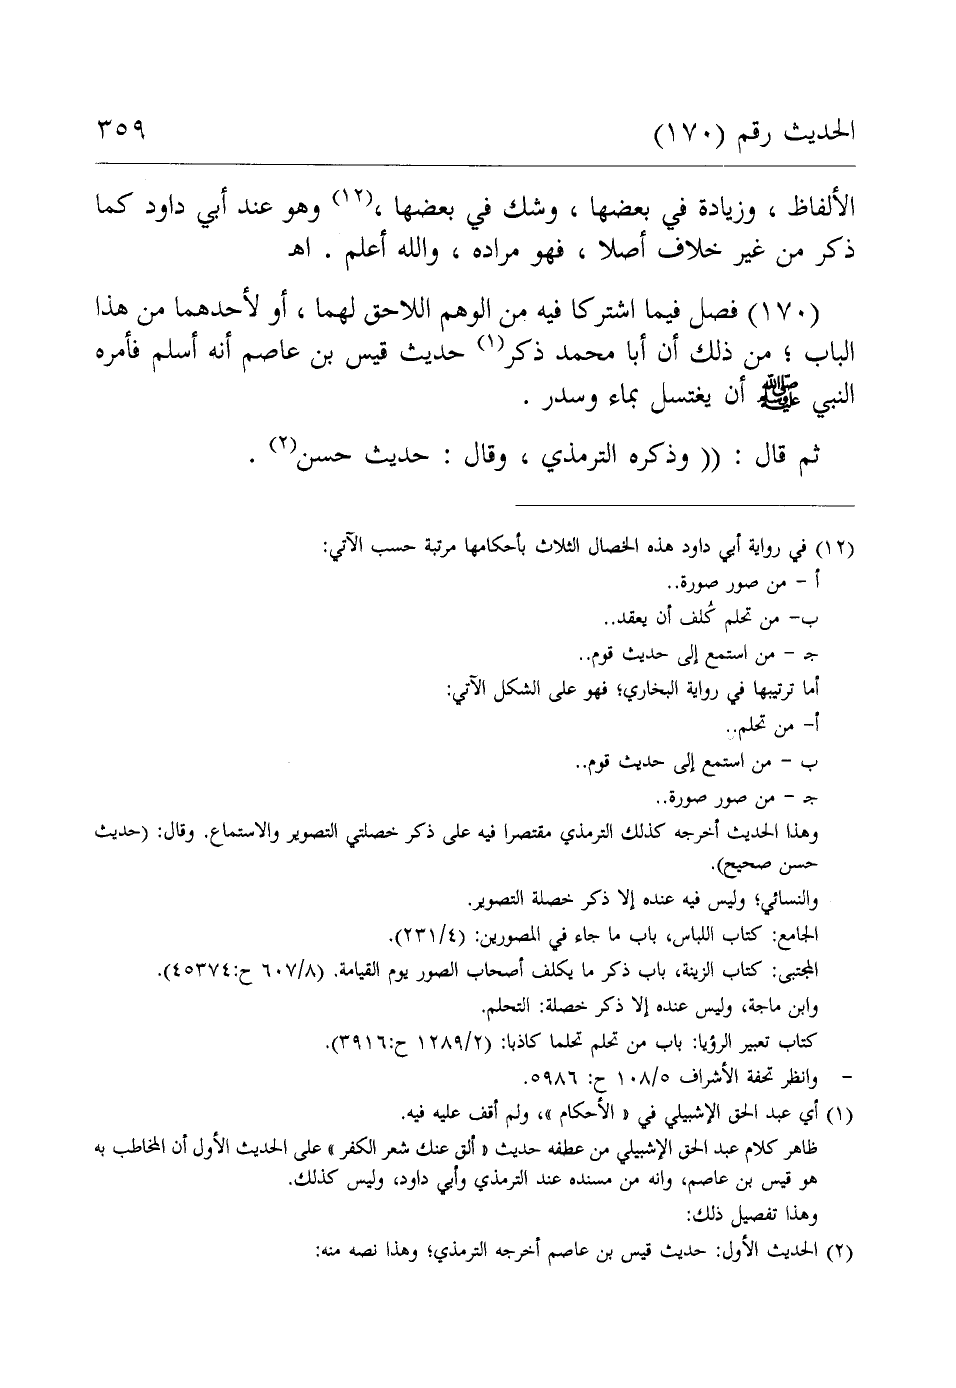 الحديث رقم (١٧٠)
٣٥٩
الألفاظ ، وزيادة في بعضها ، وشك في بعضها ،(١٢) وهو عند أبي داود كما
ذكر من غير خلاف أصلا ، فهو مراده ، والله أعلم . اهـ
(١٧٠) فصل فيما اشتركا فيه من الوهم اللاحق لهما ، أو لأحدهما من هذا
الباب ؛ من ذلك أن أبا محمد ذكر(١) حديث قيس بن عاصم أنه أسلم فأمره
النبي ﷺ أن يغتسل بماء وسدر .
ثم قال : (( وذكره الترمذي ، وقال : حديث حسن(٢) .
(١٢) في رواية أبي داود هذه الخصال الثلاث بأحكامها مرتبة حسب الآتي:
أ - من صور صورة..
ب- من تحلم كُلف أن يعقد..
جـ - من استمع إلى حديث قوم..
أما ترتيبها في رواية البخاري؛ فهو على الشكل الآتي:
أ- من تحلم..
ب - من استمع إلى حديث قوم..
جـ - من صور صورة..
وهذا الحديث أخرجه كذلك الترمذي مقتصرا فيه على ذكر خصلتي التصوير والاستماع. وقال: (حديث
حسن صحيح).
والنسائي؛ وليس فيه عنده إلا ذكر خصلة التصوير.
الجامع: كتاب اللباس، باب ما جاء في المصورين: (٢٣١/٤).
المجتبى: كتاب الزينة، باب ذكر ما يكلف أصحاب الصور يوم القيامة. (٦٠٧/٨ ح:٤٥٣٧٤).
وابن ماجة، وليس عنده إلا ذكر خصلة: التحلم.
كتاب تعبير الرؤيا: باب من تحلم تحلما كاذبا: (١٢٨٩/٢ ح:٣٩١٦).
- وانظر تحفة الأشراف ١٠٨/٥ ح: ٥٩٨٦.
(١) أي عبد الحق الإشبيلي في « الأحكام »، ولم أقف عليه فيه.
ظاهر كلام عبد الحق الإشبيلي من عطفه حديث « ألق عنك شعر الكفر » على الحديث الأول أن المخاطب به
هو قيس بن عاصم، وانه من مسنده عند الترمذي وأبي داود، وليس كذلك.
وهذا تفصيل ذلك:
(٢) الحديث الأول: حديث قيس بن عاصم أخرجه الترمذي؛ وهذا نصه منه: